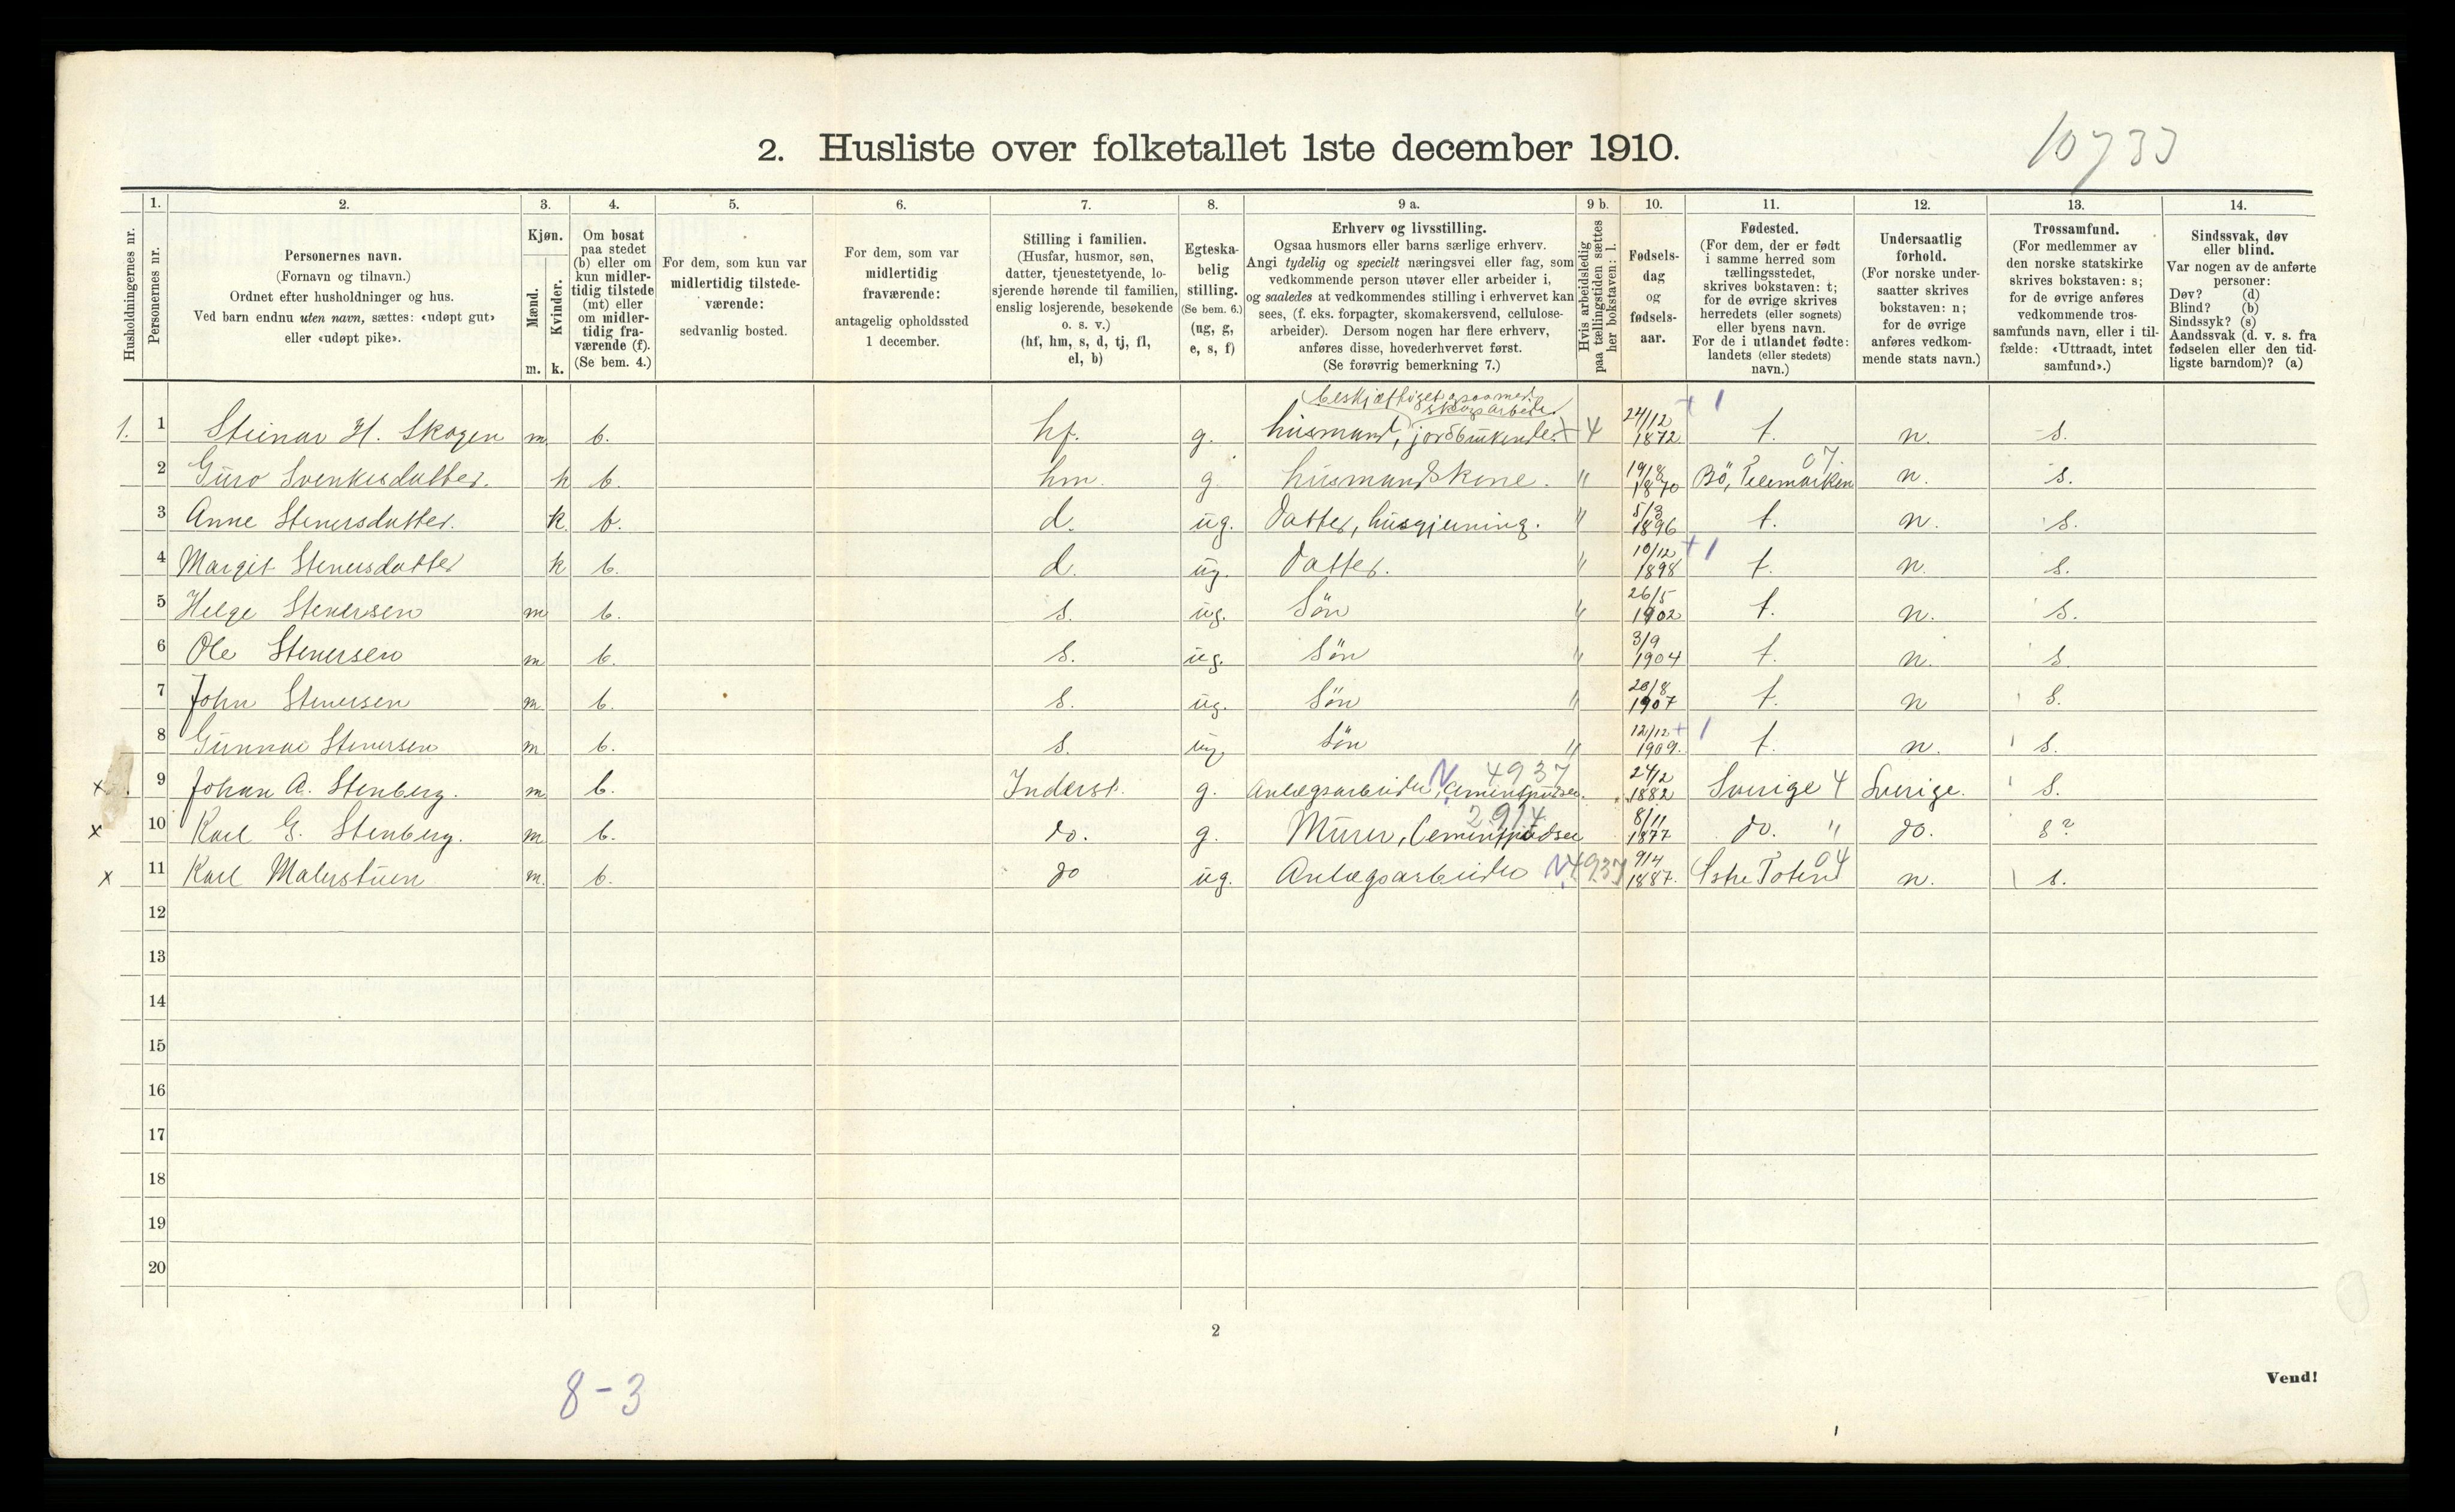 10733
2. Husliste over folketallet 1ste december 1910.
Husholdningernes nr.
1. Personernes nr.
2. Personernes navn. (Fornavn og tilnavn.) Ordnet efter husholdninger og hus. Ved barn endnu uten navn, sættes: «udøpt gut» eller «udøpt pike».
3. Kjøn. Mænd. m. Kvinder. k.
4. Om bosat paa stedet (b) eller om kun midlertidig tilstede (mt) eller om midlertidig fraværende (f). (Se bem. 4.)
5. For dem, som kun var midlertidig tilstedeværende: sedvanlig bosted.
6. For dem, som var midlertidig fraværende: antagelig opholdssted 1 december.
7. Stilling i familien. (Husfar, husmor, søn, datter, tjenestetyende, losjerende hørende til familien, enslig losjerende, besøkende o. s. v.) (hf, hm, s, d, tj, fl, el, b)
8. Egteskabelig stilling. (Se bem. 6.) (ug, g, e, s, f)
9 a. Erhverv og livsstilling. Ogsaa husmors eller barns særlige erhverv. Angi tydelig og specielt næringsvei eller fag, som vedkommende person utøver eller arbeider i, og saaledes at vedkommendes stilling i erhvervet kan sees, (f. eks. forpagter, skomakersvend, cellulosearbeider). Dersom nogen har flere erhverv, anføres disse, hovederhvervet først. (Se forøvrig bemerkning 7.)
9 b. Hvis arbeidsledig paa tællingstiden sættes her bokstaven: l.
10. Fødselsdag og fødselsaar.
11. Fødested. (For dem, der er født i samme herred som tællingsstedet, skrives bokstaven: t; for de øvrige skrives herredets (eller sognets) eller byens navn. For de i utlandet fødte: landets (eller stedets) navn.)
12. Undersaatlig forhold. (For norske undersaatter skrives bokstaven: n; for de øvrige anføres vedkommende stats navn.)
13. Trossamfund. (For medlemmer av den norske statskirke skrives bokstaven: s; for de øvrige anføres vedkommende trossamfunds navn, eller i tilfælde: «Uttraadt, intet samfund».)
14. Sindssvak, døv eller blind. Var nogen av de anførte personer: Døv? (d) Blind? (b) Sindssyk? (s) Aandssvak (d. v. s. fra fødselen eller den tidligste barndom)? (a)
(beskjæftiget ogsaa med skogsarbeide)
1. 1 Steinar H. Skogen m b. hf. g. husmand, jordbrukende 4 24/12 1872 + 1 t. n. s.
2 Guro Svenkesdatter. k b. hm. g husmandskone. " 19/8 1870 Bö, Telemarken 07 n. s.
3 Anne Stenersdatter. k. b. d. ug. Datter, husgjerning. " 5/3 1896 t. n. s.
4 Margit Stenersdatter k b. d. ug. Datter. " 10/12 1898 + 1 t. n. s.
5 Helge Stenersen m b. s. ug. Sön " 26/5 1902 t. n. s.
6 Ole Stenersen m b. s. ug. Sön " 3/9 1904 t. n. s.
7 John Stenersen m b. s. ug. Sön " 20/8 1907 t. n s.
8 Gunnar Stenersen m b. s. ug. Sön " 12/12 1909. + 1 t. n. s.
x 9 Johan A. Stenberg. m b. Inderst. g. Anlægsarbeider, Cementpudser. N 4937 24/2 1882 Sverige 4 Sverige. s.
x 10 Karl G. Stenberg. m b. do. g. Murer, Cementpudser 2914 8/11 1877 do. " do. s?
x 11 Karl Malerstuen m. b. do ug. Anlægsarbeider N 4937 9/4 1887. Östre Toten 04 n. s.
12
13
14
15
16
17
18
19
20
2
8-3
Vend!